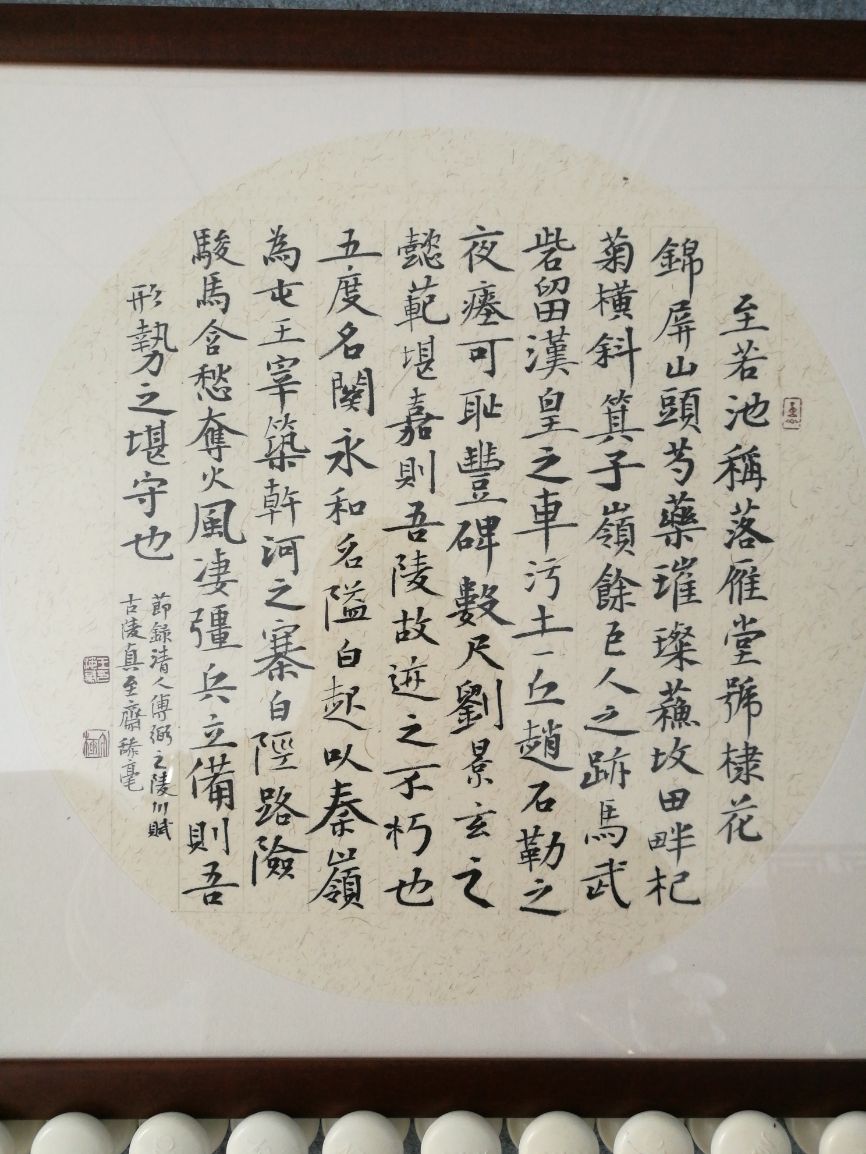 至若池稱落雁堂號棣花
錦屏山頭芍藥璀璨蘓坟田畔杞
菊橫斜箕子嶺餘巨人之跡馬武
砦留漢皇之車污土一丘趙石勒之
夜瘞可恥豐碑數尺劉景玄之
懿範堪嘉則吾陵故迹之不朽也
五度名關永和名隘白起以秦嶺
為屯王宰築幹河之寨白陘路險
駿馬含愁奪火風淒彊兵立備則吾
形勢之堪守也
節錄清人傅弼之陵川賦
古陵真至齋豨毫